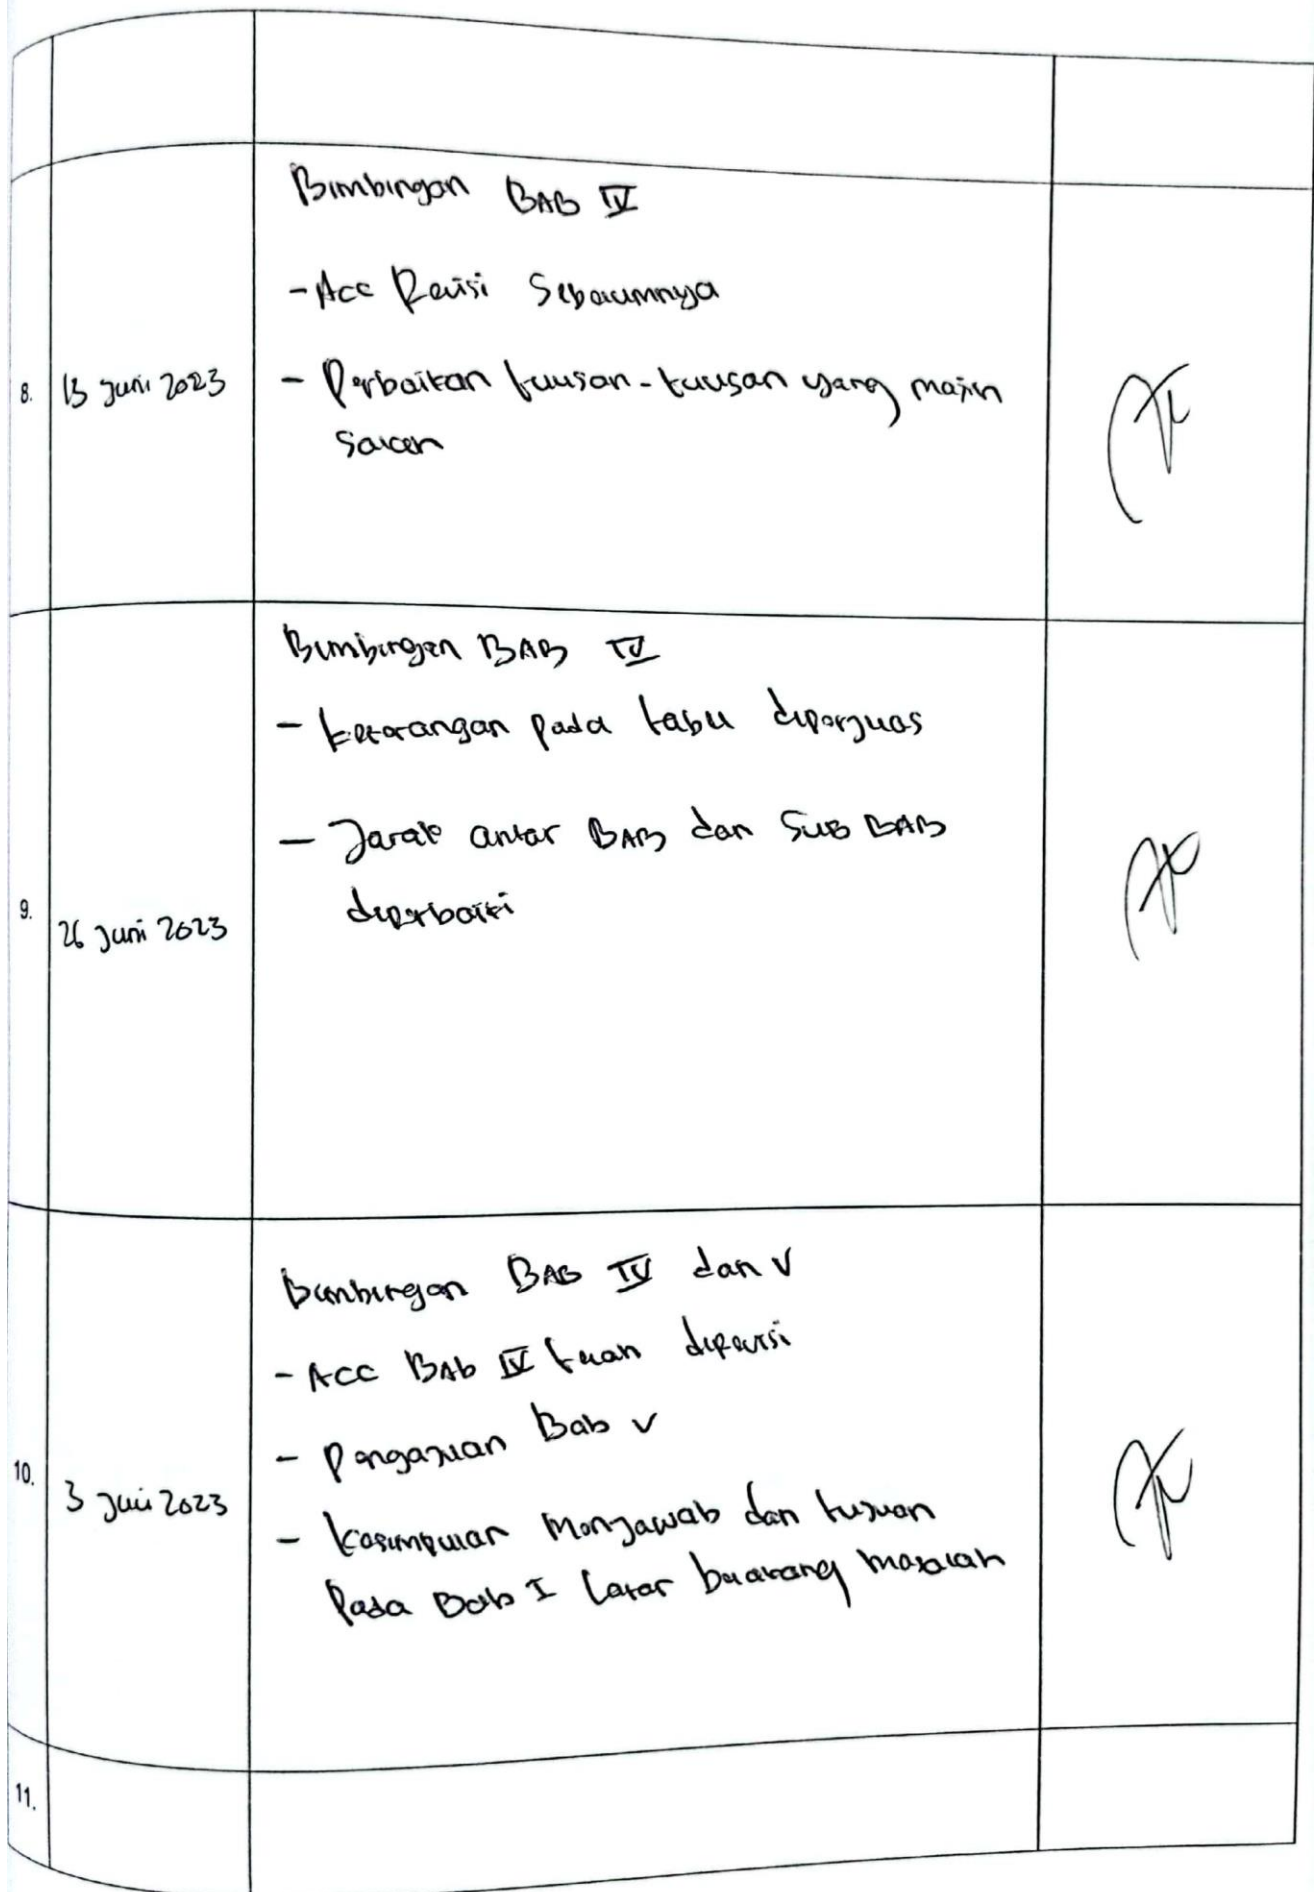 Bimbingan BAB IV
- Acc Revisi Sebelumnya
8. 13 Juni 2023
- Perbaikan tulisan-tulisan yang masih
salah
Bimbingan BAB IV
- keterangan pada tabel diperjelas
- Jarak antar BAB dan SUB BAB
diperbaiki
9. 26 Juni 2023
Bimbingan BAB IV dan V
- ACC BAb IV telah direvisi
- Pengajuan Bab V
10. 3 Juli 2023
- Kesimpulan Menjawab dan tujuan
Pada Bab I latar belakang masalah
11.